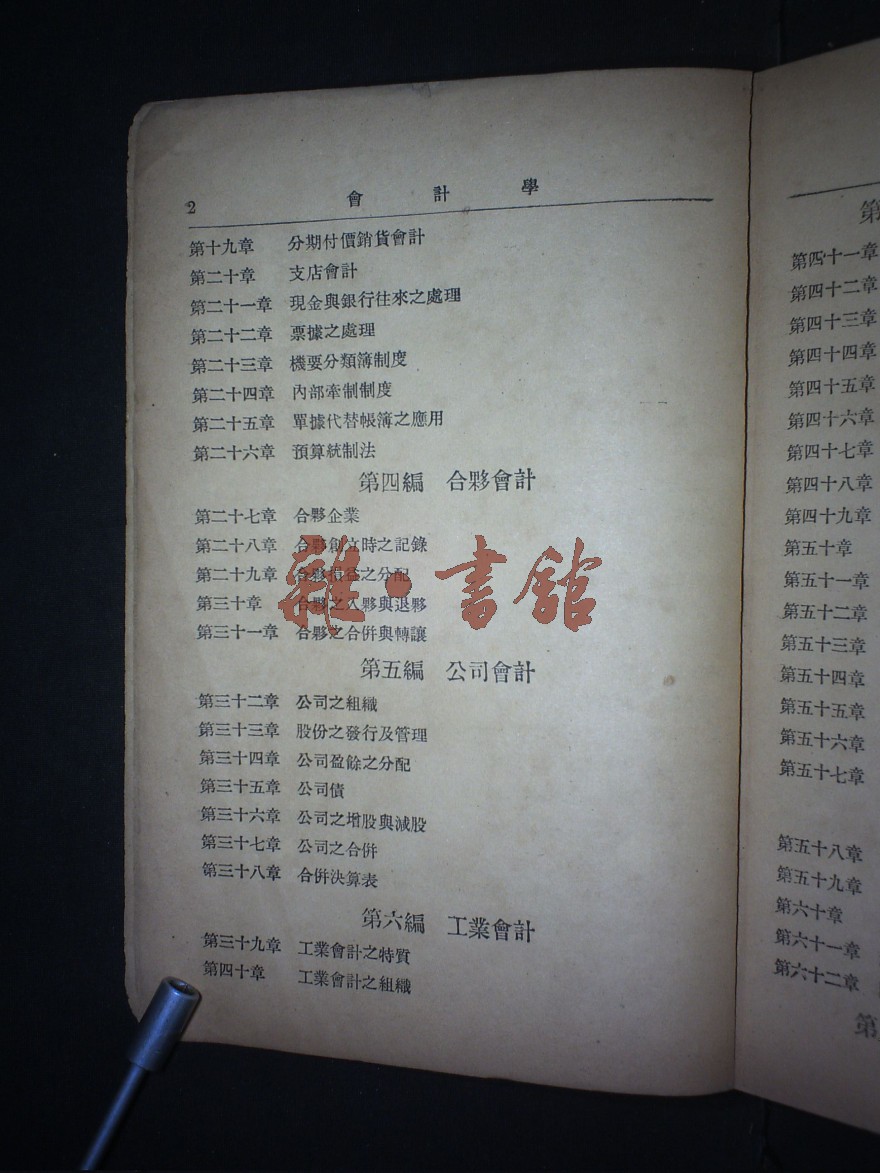 2 會計學
第十九章 分期付價銷貨會計
第二十章 支店會計
第二十一章 現金與銀行往來之處理
第二十二章 票據之處理
第二十三章 機要分類簿制度
第二十四章 內部牽制制度
第二十五章 單據代替帳簿之應用
第二十六章 預算統制法
第四編 合夥會計
第二十七章 合夥企業
第二十八章 合夥創立時之記錄
第二十九章 合夥損益之分配
第三十章 合夥之入夥與退夥
第三十一章 合夥之合併與轉讓
第五編 公司會計
第三十二章 公司之組織
第三十三章 股份之發行及管理
第三十四章 公司盈餘之分配
第三十五章 公司債
第三十六章 公司之增股與減股
第三十七章 公司之合併
第三十八章 合併決算表
第六編 工業會計
第三十九章 工業會計之特質
第四十章 工業會計之組織
雜·書館
第
第四十一章
第四十二章
第四十三章
第四十四章
第四十五章
第四十六章
第四十七章
第四十八章
第四十九章
第五十章
第五十一章
第五十二章
第五十三章
第五十四章
第五十五章
第五十六章
第五十七章
第五十八章
第五十九章
第六十章
第六十一章
第六十二章
第